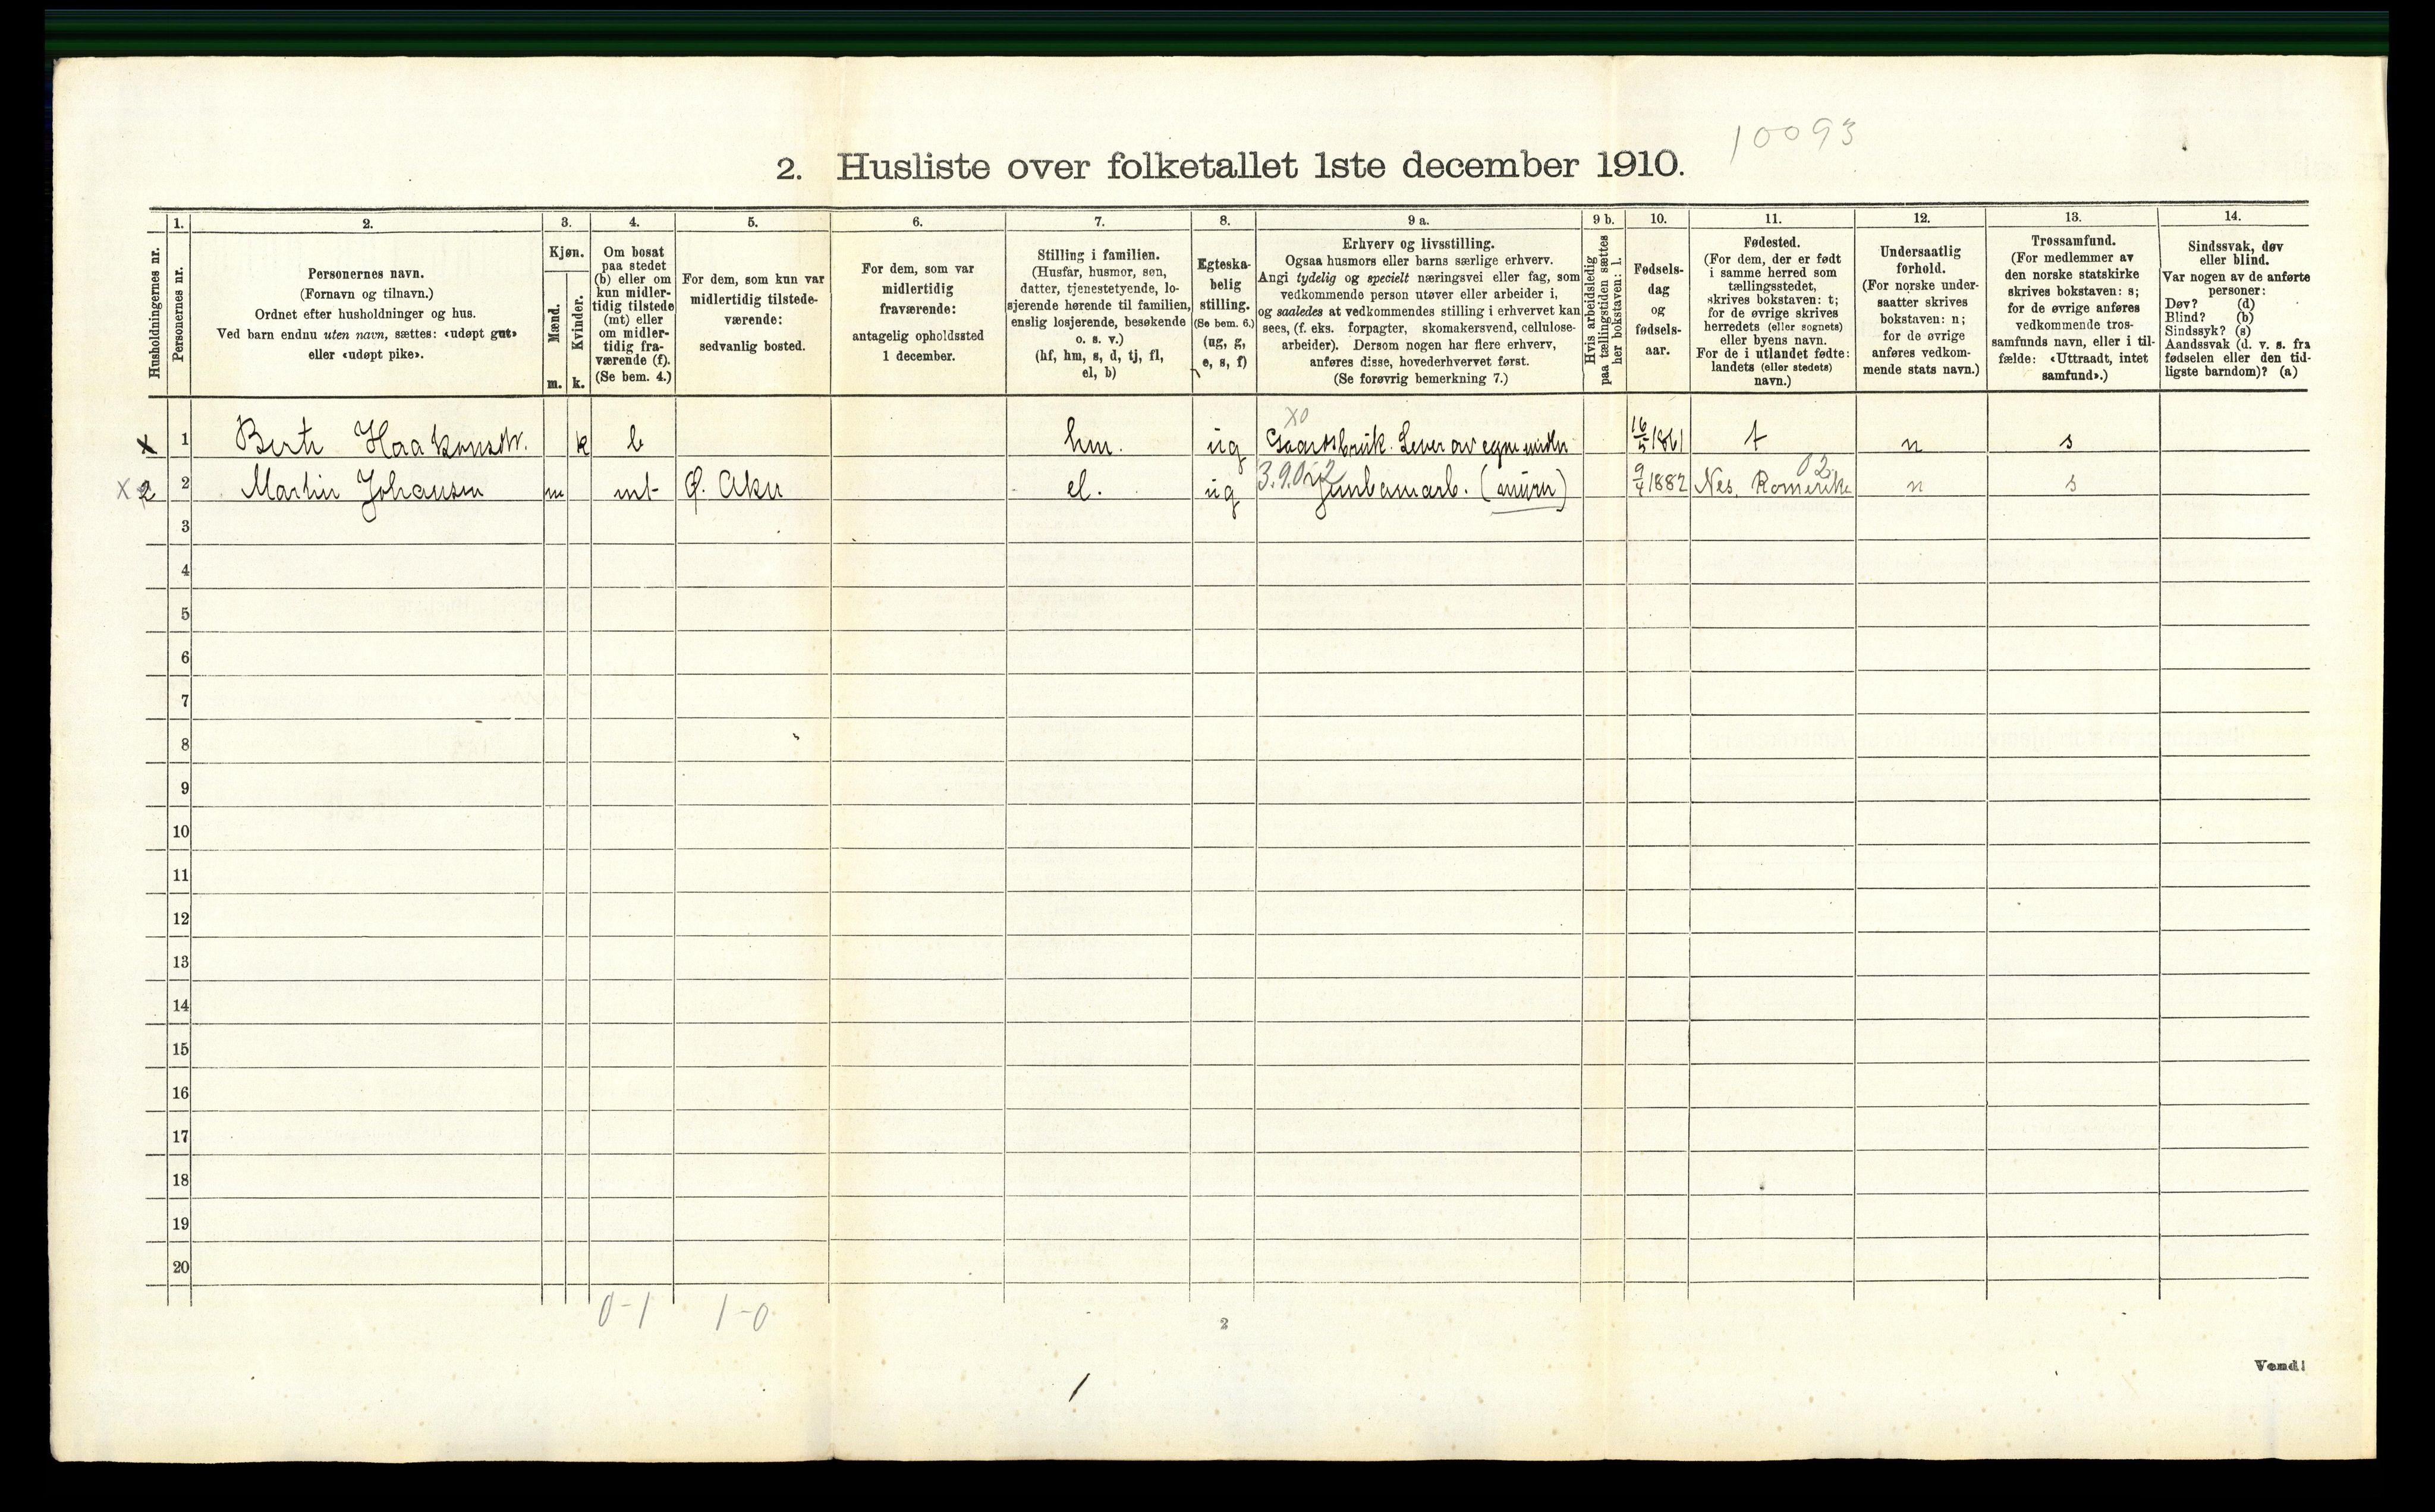 10093
2. Husliste over folketallet 1ste december 1910.
Husholdningernes nr.
1.
Personernes nr.
2.
Personernes navn.
(Fornavn og tilnavn.)
Ordnet efter husholdninger og hus.
Ved barn endnu uten navn, sættes: «udøpt gut»
eller «udøpt pike».
3.
Kjøn.
Mænd.
m.
Kvinder.
k.
4.
Om bosat
paa stedet
(b) eller om
kun midler-
tidig tilstede
(mt) eller
om midler-
tidig fra-
værende (f).
(Se bem. 4.)
5.
For dem, som kun var
midlertidig tilstede-
værende:
sedvanlig bosted.
6.
For dem, som var
midlertidig
fraværende:
antagelig opholdssted
1 december.
7.
Stilling i familien.
(Husfar, husmor, søn,
datter, tjenestetyende, lo-
sjerende hørende til familien,
enslig losjerende, besøkende
o. s. v.)
(hf, hm, s, d, tj, fl,
el, b)
8.
Egteska-
belig
stilling.
(Se bem. 6.)
(ug, g,
e, s, f)
9 a.
Erhverv og livsstilling.
Ogsaa husmors eller barns særlige erhverv.
Angi tydelig og specielt næringsvei eller fag, som
vedkommende person utøver eller arbeider i,
og saaledes at vedkommendes stilling i erhvervet kan
sees, (f. eks. forpagter, skomakersvend, cellulose-
arbeider). Dersom nogen har flere erhverv,
anføres disse, hovederhvervet først.
(Se forøvrig bemerkning 7.)
9 b.
Hvis arbeidsledig
paa tællingstiden sættes
her bokstaven: l.
10.
Fødsels-
dag
og
fødsels-
aar.
11.
Fødested.
(For dem, der er født
i samme herred som
tællingsstedet,
skrives bokstaven: t;
for de øvrige skrives
herredets (eller sognets)
eller byens navn.
For de i utlandet fødte:
landets (eller stedets)
navn.)
12.
Undersaatlig
forhold.
(For norske under-
saatter skrives
bokstaven: n;
for de øvrige
anføres vedkom-
mende stats navn.)
13.
Trossamfund.
(For medlemmer av
den norske statskirke
skrives bokstaven: s;
for de øvrige anføres
vedkommende tros-
samfunds navn, eller i til-
fælde: «Uttraadt, intet
samfund».)
14.
Sindssvak, døv
eller blind.
Var nogen av de anførte
personer:
Døv? (d)
Blind? (b)
Sindssyk? (s)
Aandssvak (d. v. s. fra
fødselen eller den tid-
ligste barndom)? (a)
X0
x 1 Haakonsdtr. k b hm. ug Gaardsbruk. Lever av egne midler 16/5 1861 t n s
02
X 2 2 Martin Johansen m mt Ø. Aker el. ug 3.9.0 (murer) 9/4 1882 Nes. Romerike n s
3
4
5
6
7
8
9
10
11
12
13
14
15
16
17
18
19
20
0-1 1-0
2
Vend!